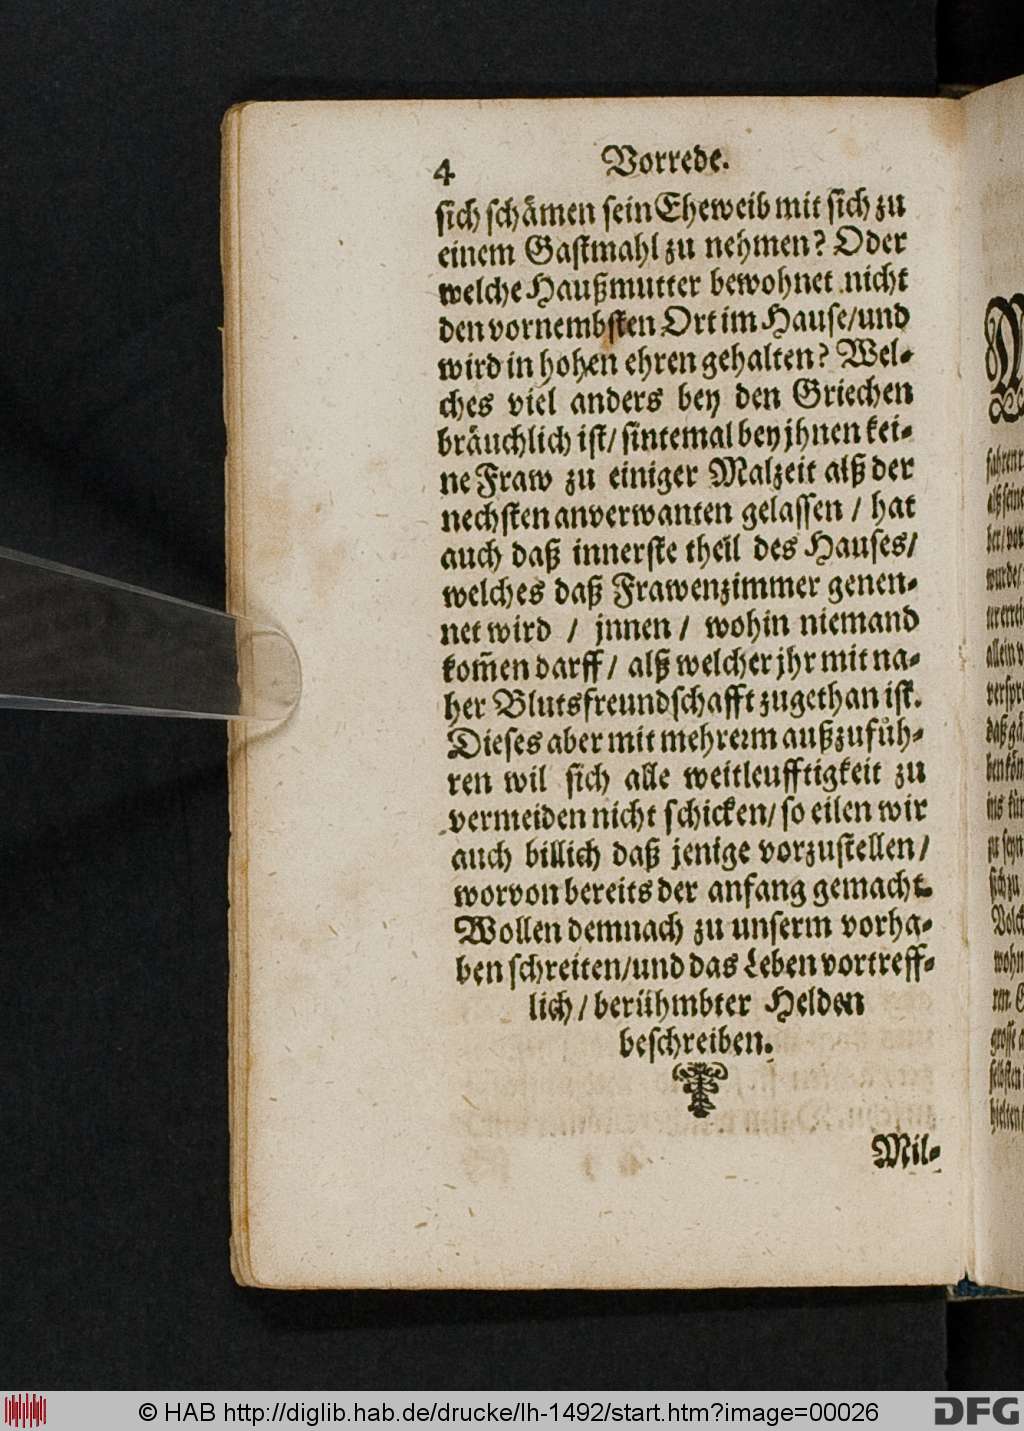 4 Vorrede.
sich schämen sein Eheweib mit sich zu
einem Gastmahl zu nehmen? Oder
welche Haußmutter bewohnet nicht
den vornembsten Ort im Hause/und
wird in hohen ehren gehalten? Wel-
ches viel anders bey den Griechen
bräuchlich ist/ sintemal bey jhnen kei-
ne Fraw zu einiger Malzeit alß der
nechsten anverwanten gelassen / hat
auch daß innerste theil des Hauses/
welches daß Frawenzimmer genen-
net wird / jnnen / wohin niemand
kom̃en darff / alß welcher jhr mit na-
her Blutsfreundschafft zugethan ist.
Dieses aber mit mehrerm außzufüh-
ren wil sich alle weitleufftigkeit zu
vermeiden nicht schicken/ so eilen wir
auch billich daß jenige vorzustellen/
worvon bereits der anfang gemacht.
Wollen demnach zu unserm vorha-
ben schreiten/und das Leben vortreff-
lich/ berühmbter Helden
beschreiben.
Mil-
© HAB http://diglib.hab.de/drucke/lh-1492/start.htm?image=00026
DFG